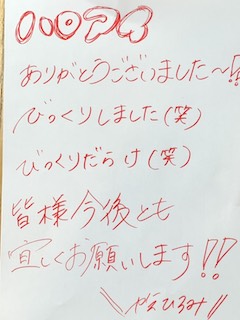 ハロアス
ありがとうございました〜!!
びっくりしました(笑)
びっくりだらけ(笑)
皆様今後とも
宜しくお願いします!!
\\ やえひろみ //